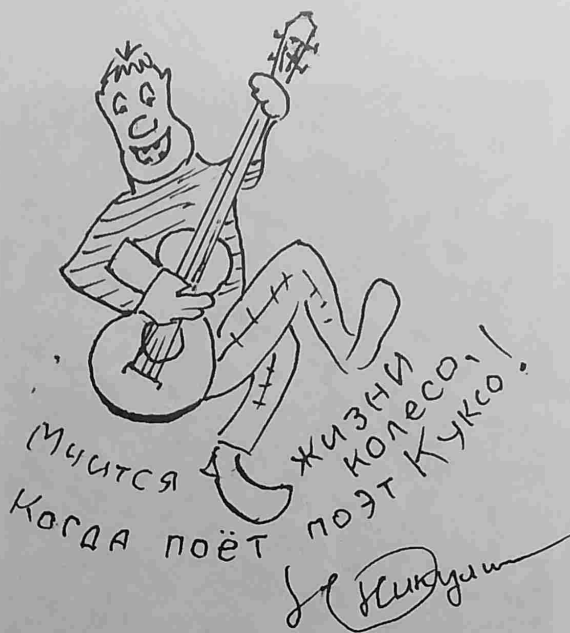 Мчится жизни колесо,
Когда поёт поэт Куксо!
Никулин